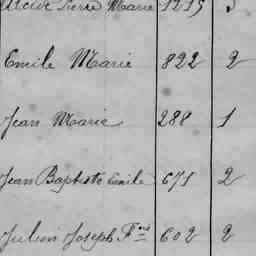 Alcide Pierre Marie 1215 3
Emile Marie 822 2
Jean Marie 288 1
Jean Baptiste Emile 671 2
Julien Joseph Fois 602 2